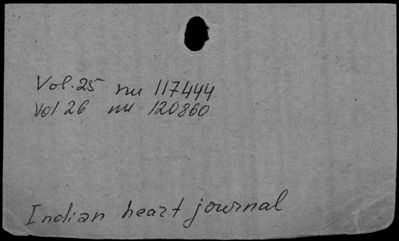 Vol. 25 nu 117444
Vol 26 nu 120860
Indian heart journal